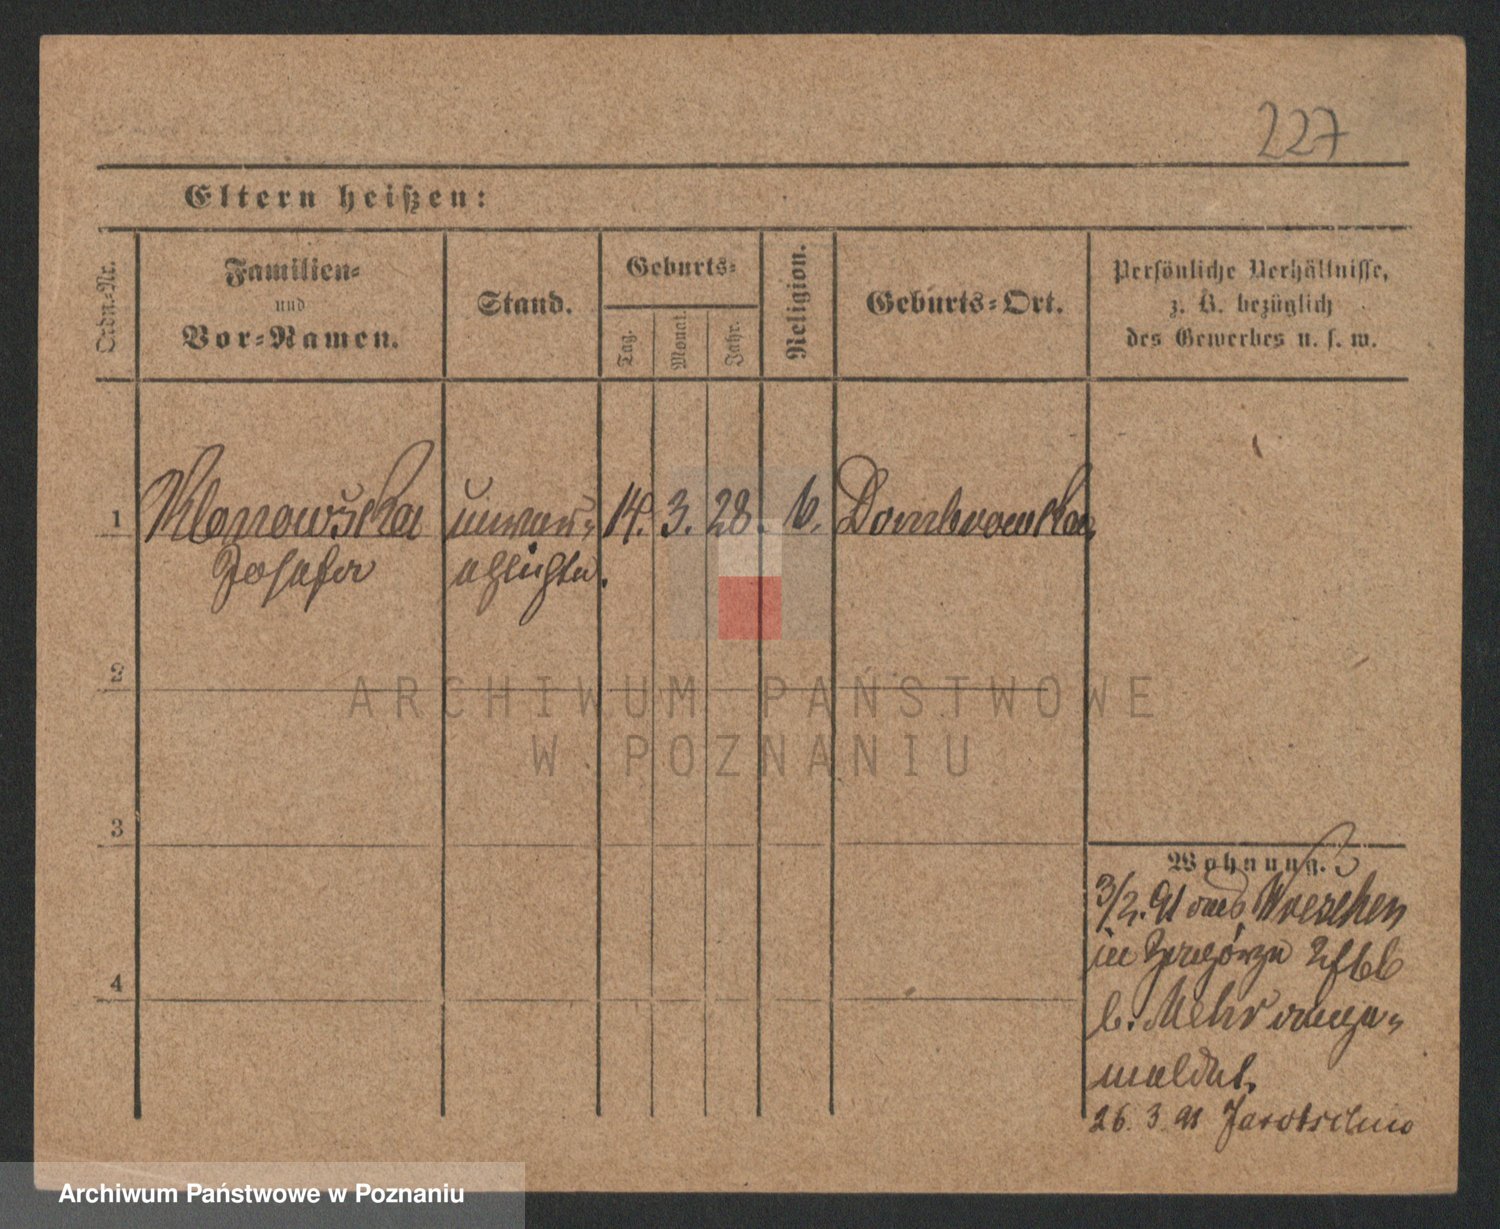 227
Eltern heißen:
Ordn.-Nr.
Familien-
und
Vor-Namen.
Stand.
Geburts-
Tag.
Monat.
Jahr.
Religion.
Geburts-Ort.
Persönliche Verhältnisse,
z. B. bezüglich
des Gewerbes u. s. w.
1
Klonowska
Josefa
unver-
ehlichte.
14.
3.
28.
k.
Dombrowka
2
ARCHIWUM PAŃSTWOWE
W POZNANIU
3
Wohnung.
3/2. 91 aus Wreschen
in
b. Mehr ange-
meldet.
4
26. 3. 91 Jarotschin
Archiwum Państwowe w Poznaniu